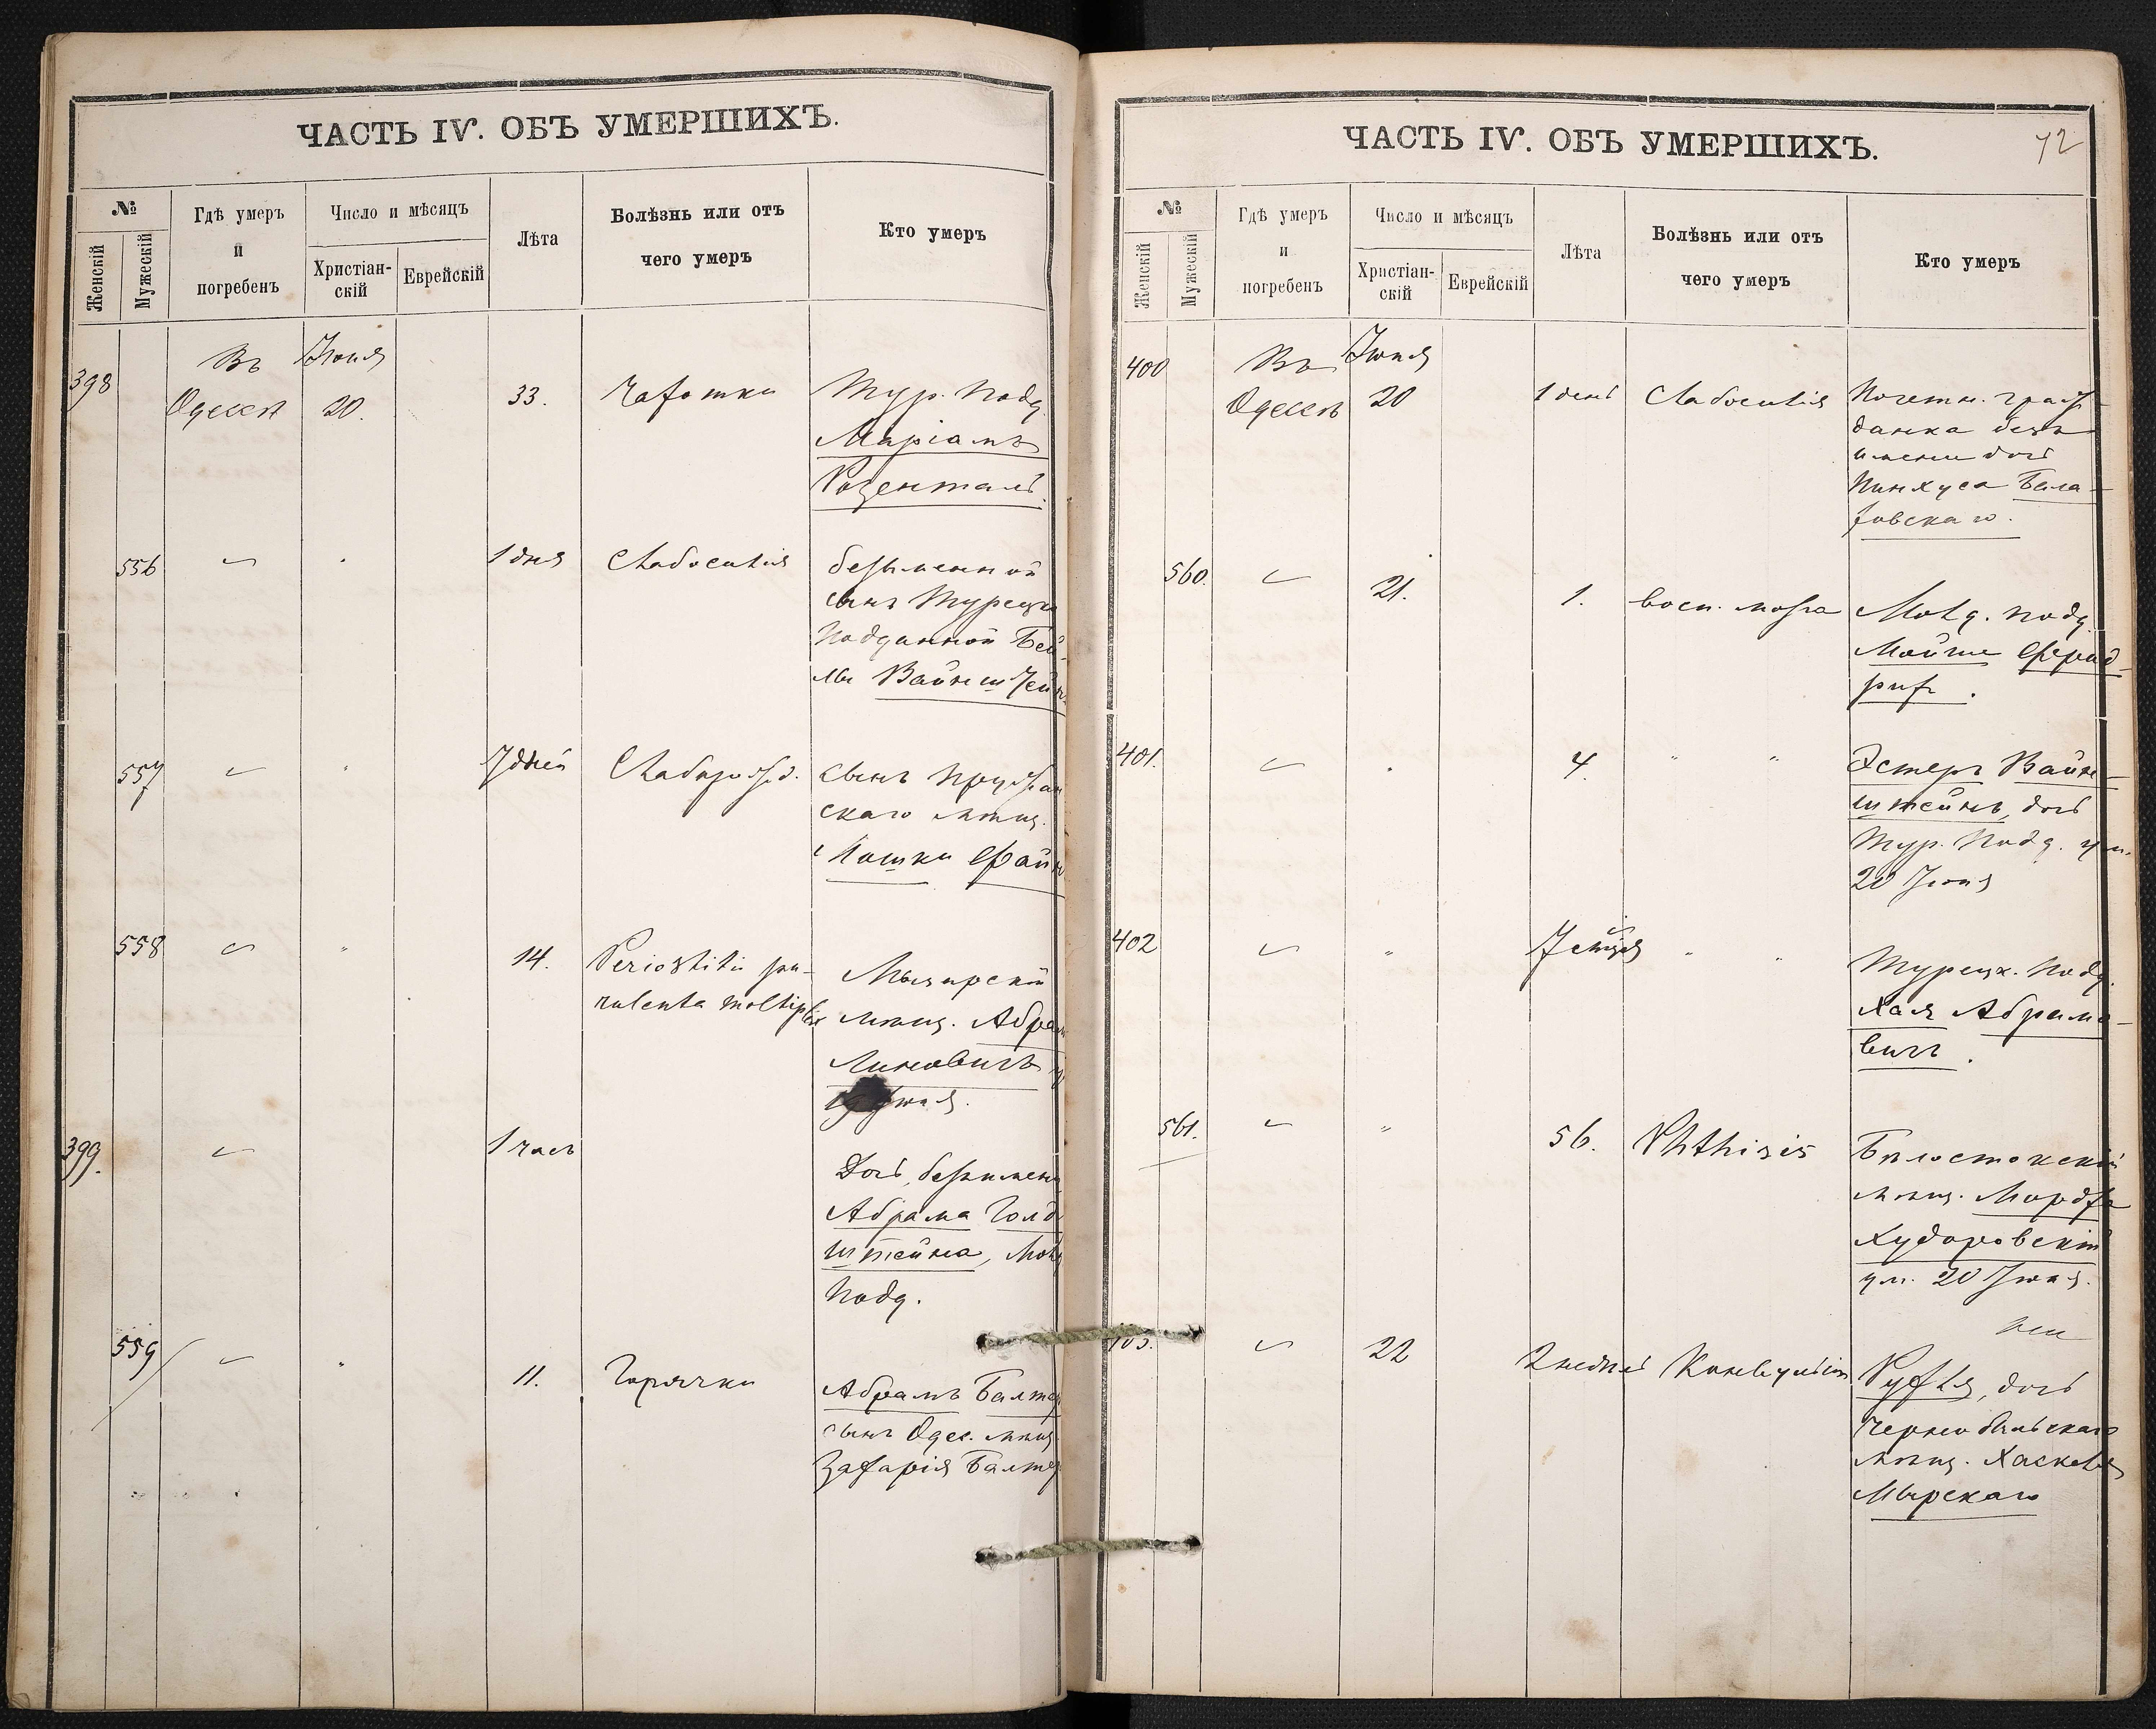 ЧАСТЬ IV. ОБЪ УМЕРШИХЪ.
№
Женскій
Мужескій
Гдѣ умеръ
и
погребенъ
Число и мѣсяцъ
Христіан-
скій
Еврейскій
Лѣта
Болѣзнь или отъ
чего умеръ
Кто умеръ
398
Въ
Одессѣ
Іюня
20.
33.
Чахотки
Тур. подд.
Маріамъ
Розенталь.
556
1 дня
Слабосилія
безыменной
сынъ Турецк
подданной Бей-
лы Вайнштейн
557
7 дней
Слаборожд.
сынъ Пружан
скаго мѣщ.
Іошки Файн
558
14.
Periostitis pu-
rulenta moltiplex
Мозырскій
мѣщ. Абрам
Линовичъ
Іюня.
399.
1 часъ
Дочь, безымен
Абрама Голд
штейна, Молд
подд.
559
11.
Горячки
Абрамъ Балтер
сынъ Одес. мѣщ.
Захарія Балтер
ЧАСТЬ IV. ОБЪ УМЕРШИХЪ.
72
№
Женскій
Мужескій
Гдѣ умеръ
и
погребенъ
Число и мѣсяцъ
Христіан-
скій
Еврейскій
Лѣта
Болѣзнь или отъ
чего умеръ
Кто умеръ
400
Въ
Одессѣ
Іюня
20
1 день
Слабосилія
Почетн. граж-
данка безъ
имени дочь
Пинхуса Бала-
ховскаго.
560.
21.
1.
восп. мозга
Молд. подд.
Мойше Фрид-
рихъ.
401.
4.
" "
Эстеръ Вайн-
штейнъ, дочь
Тур. подд. ум.
20 Іюня
402
"
7 мѣсяц
" "
Турецк. подд.
Хая Абрамо-
вичъ.
561.
"
56.
Phthisis
Бѣлостокскій
мѣщ. Мордхо
Худоровскій
ум. 20 Іюня.
403.
22
2 недѣль
Конвульсіи
Рухля, дочь
Чернобыльскаго
мѣщ. Хаскеля
Мырскаго